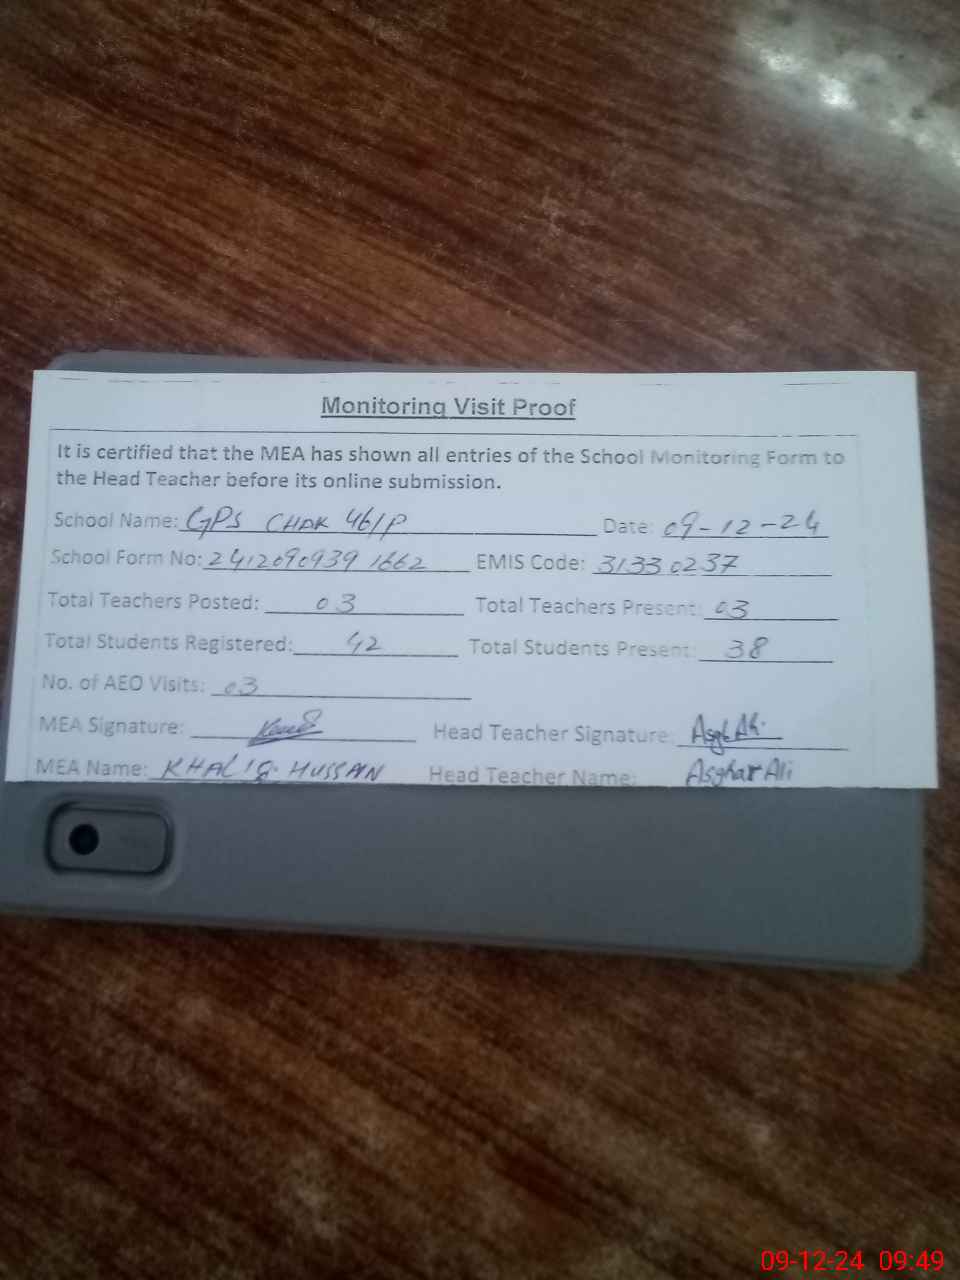 Monitoring Visit Proof
It is certified that the MEA has shown all entries of the School Monitoring Form to
the Head Teacher before its online submission.
School Name: GPS CHAK 46/P Date: 09-12-24
School Form No: 2412090939 1662 EMIS Code: 31330237
Total Teachers Posted: 03 Total Teachers Present: 03
Total Students Registered: 42 Total Students Present: 38
No. of AEO Visits: 03
MEA Signature: Head Teacher Signature:
MEA Name: KHALIQ HUSSAIN Head Teacher Name: Asghar Ali
09-12-24 09:49